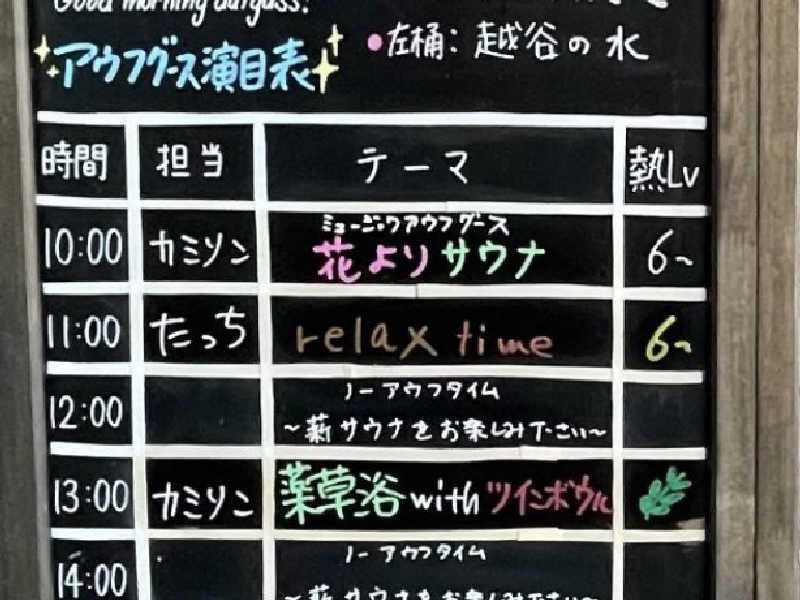 Good morning aufguss!
左桶: 越谷の水
アウフグース演目表
時間 担当 テーマ 熱Lv
ミュージックアウフグース
10:00 カミソン 花よりサウナ 6~
11:00 たっち relax time 6~
ノーアウフタイム
12:00 ~薪サウナをお楽しみ下さい~
13:00 カミソン 薬草浴 with ツインボウル
ノーアウフタイム
14:00 ~薪サウナをお楽しみ下さい~